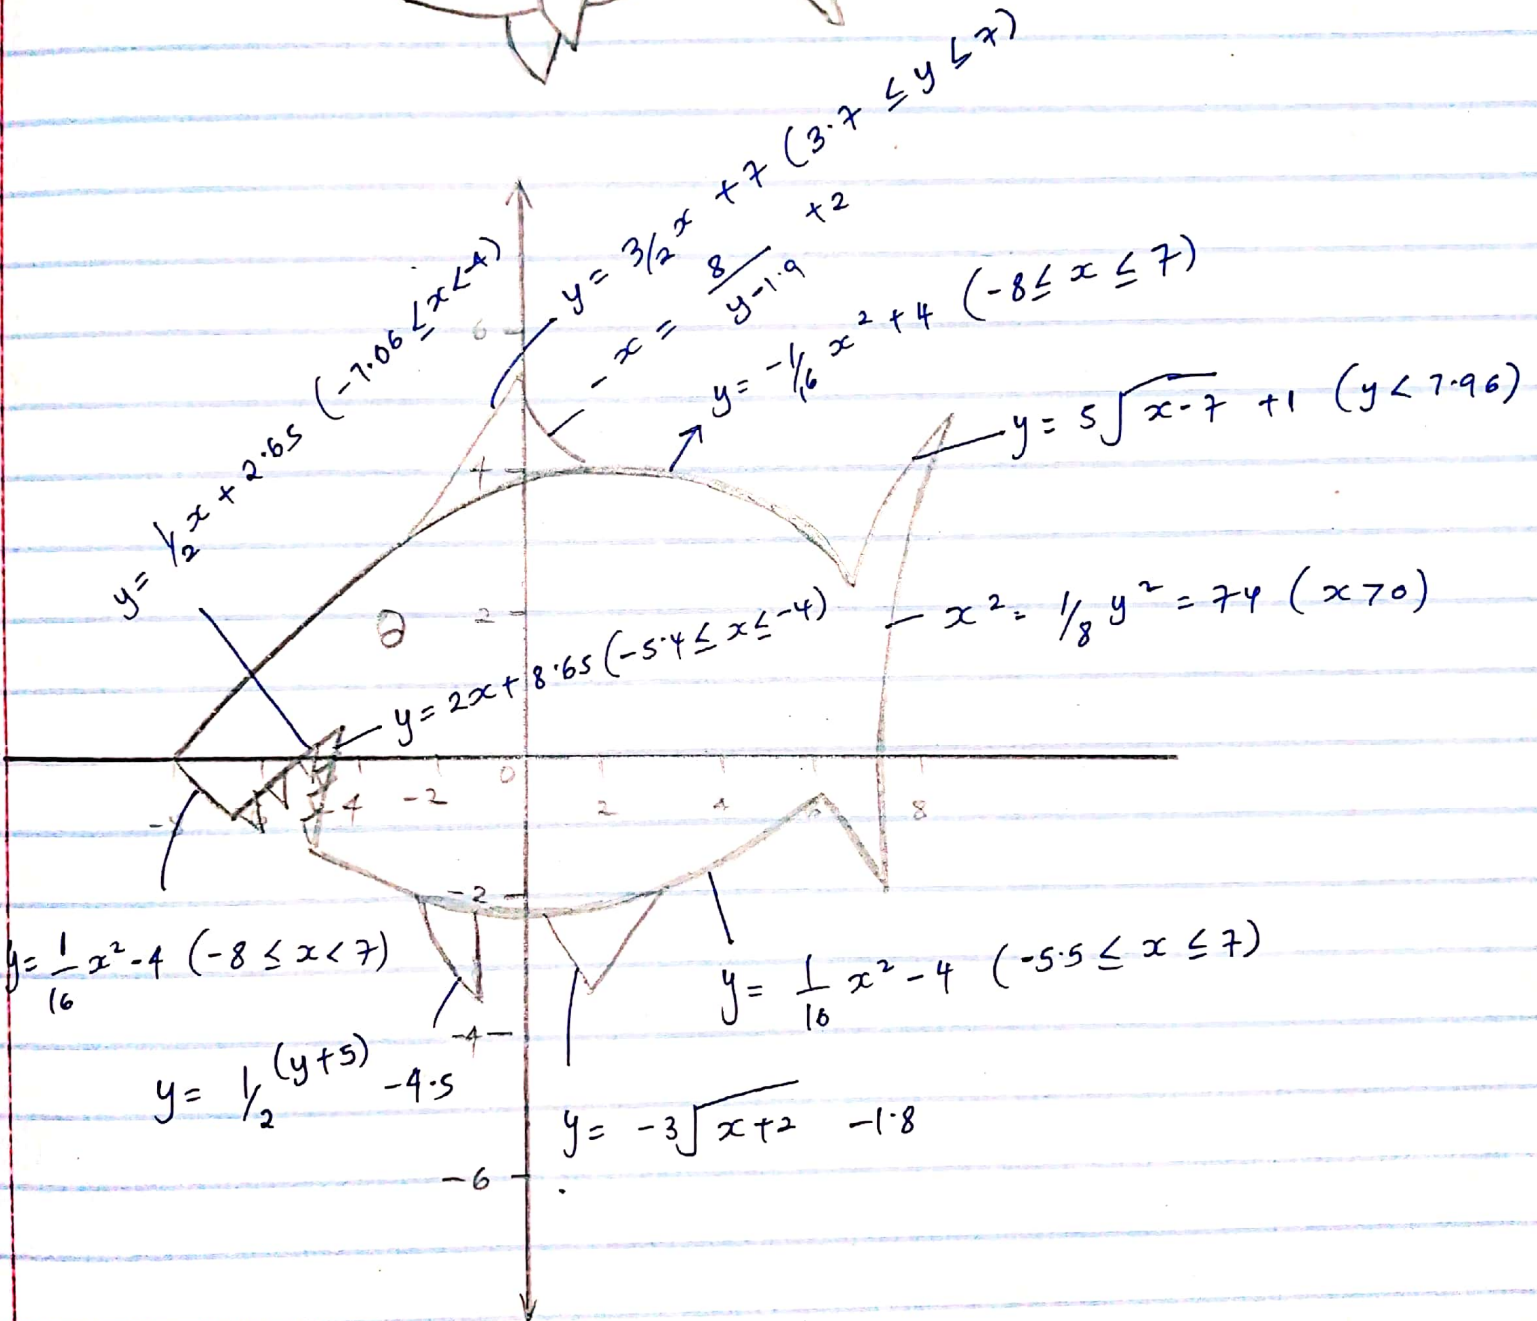 y = 3/2 x + 7 (3.7 ≤ y ≤ 7)
x = 8/(y-1.9) + 2
y = -1/16 x² + 4 (-8 ≤ x ≤ 7)
y = 1/2 x + 2.65 (-7.06 ≤ x < -4)
y = 5√(x-7) + 1 (y < 7.96)
x² = 1/8 y² = 74 (x > 0)
y = 2x + 8.65 (-5.4 ≤ x ≤ -4)
6
4
2
0
-4 -2 2 4 6 8
-2
-4
-6
y = 1/16 x² - 4 (-8 ≤ x < 7)
y = 1/16 x² - 4 (-5.5 ≤ x ≤ 7)
y = 1/2 (y+5) - 4.5
y = -3√(x+2) - 1.8